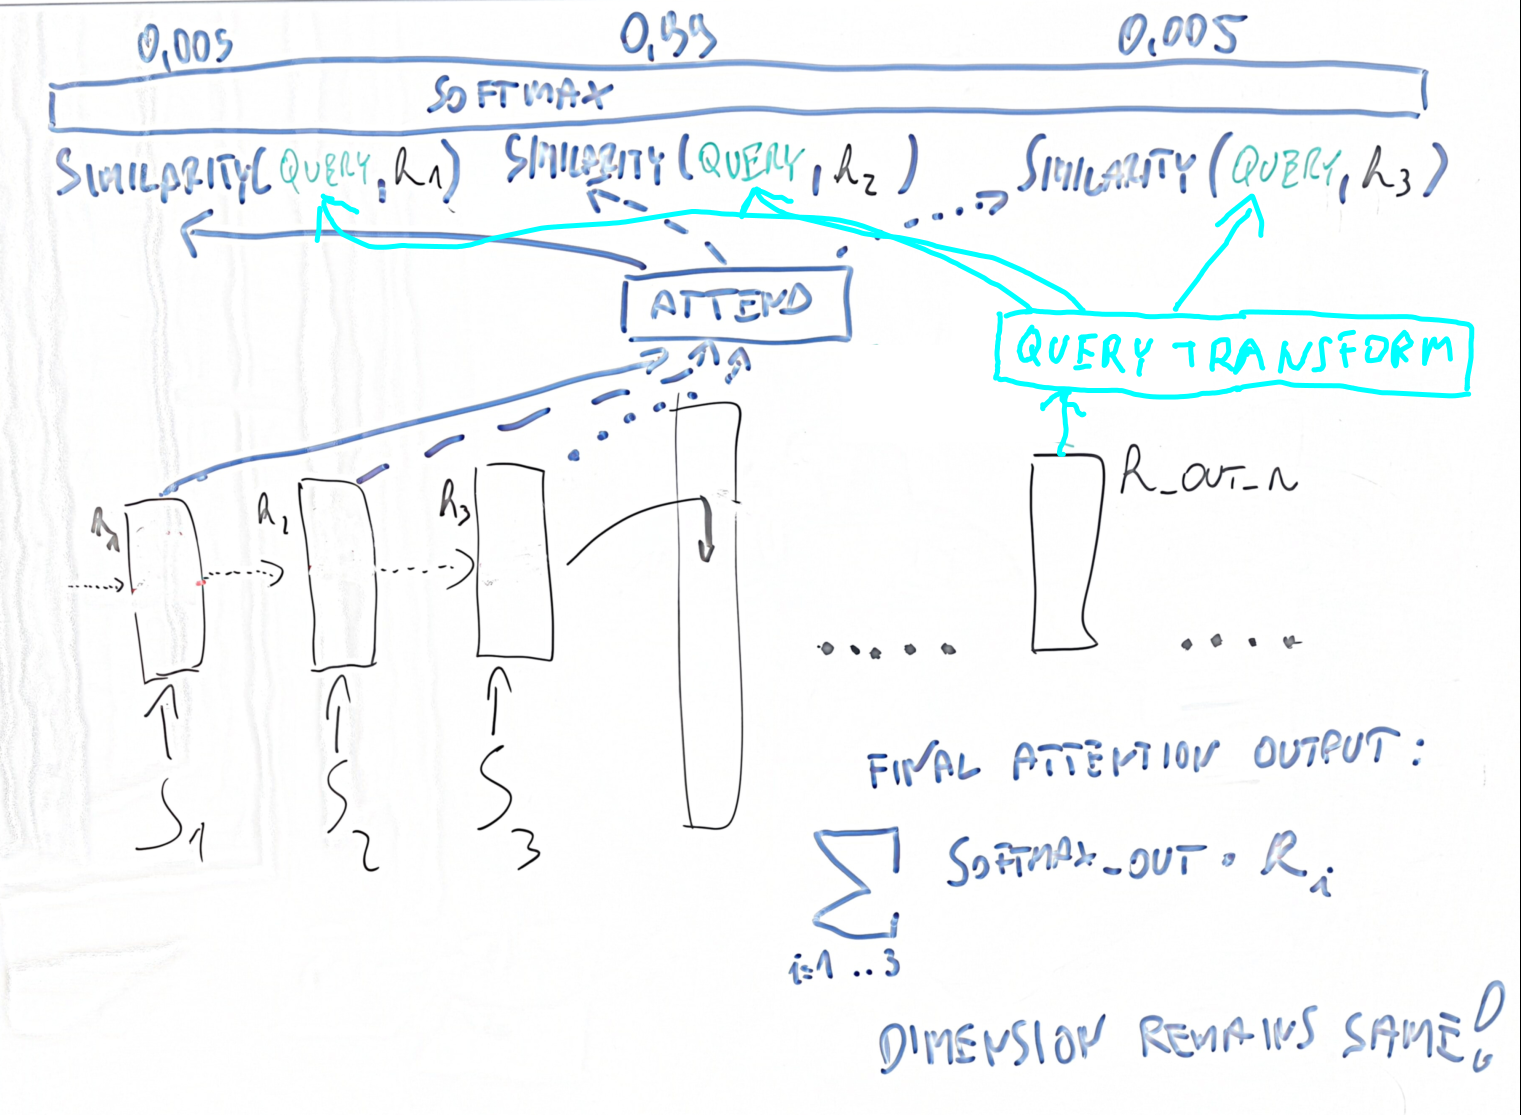 0,005 0,99 0,005
SOFTMAX
SIMILARITY(QUERY, R1) SIMILARITY(QUERY, R2) SIMILARITY(QUERY, R3)
ATTEND
QUERY TRANSFORM
R1 R2 R3 R_OUT_N
S1 S2 S3
FINAL ATTENTION OUTPUT:
∑ SOFTMAX_OUT · Ri
i=1..3
DIMENSION REMAINS SAME!